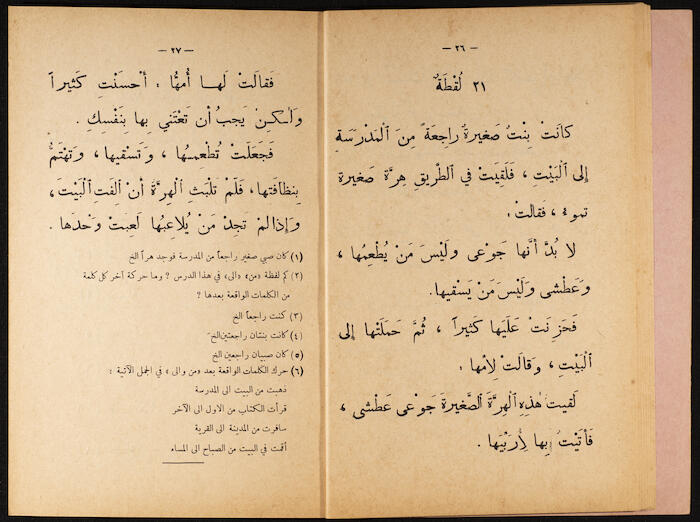 — ٢٦ —
٢١ لُقَطَةٌ
كانَتْ بِنْتٌ صَغيرةٌ راجعَةً مِنَ ٱلْمَدْرَسَةِ
إلى ٱلْبَيْتِ ، فَلَقِيَتْ في ٱلطَّريقِ هِرَّةً صَغيرةً
تموء ، فقالَتْ :
لا بُدَّ أنَّها جَوْعى ولَيْسَ مَنْ يُطْعِمُها ،
وَعَطْشى وَلَيْسَ مَنْ يَسْقيها.
فَحَزِنَتْ عَلَيْها كَثيراً ، ثُمَّ حَمَلَتْها إلى
ٱلْبَيْتِ ، وَقالَتْ لِأُمِّها :
لَقيتُ هٰذِهِ ٱلْهِرَّةَ ٱلصَّغيرَةَ جَوْعى عَطْشى ،
فَأَتَيْتُ بِها لِأُرَبِّيَها .
— ٢٧ —
فَقالَتْ لَها أُمُّها : أَحْسَنْتِ كَثيراً
وَلٰكِنْ يَجِبُ أن تَعْتَني بِها بِنَفْسِكِ .
فَجَعَلَتْ تُطْعِمُها ، وَتَسْقيها ، وَتَهْتَمُّ
بِنَظافَتِها ، فَلَمْ تَلْبَثِ ٱلْهِرَّةُ أنْ أَلِفَتِ ٱلْبَيْتَ ،
وَإذا لَمْ تَجِدْ مَنْ يُلاعِبُها لَعِبَتْ وَحْدَها .
(١) كان صبي صغير راجعاً من المدرسة فوجد هراً الخ
(٢) كم لفظة «من» و«الى» في هذا الدرس ؟ وما حركة آخر كل كلمة
من الكلمات الواقعة بعدها ؟
(٣) كنت راجعاً الخ
(٤) كانت بنتان راجعتين الخ
(٥) كان صبيان راجعين الخ
(٦) حرك الكلمات الواقعة بعد «من والى» في الجمل الآتية :
ذهبت من البيت الى المدرسة
قرأت الكتاب من الاول الى الآخر
سافرت من المدينة الى القرية
أقمت في البيت من الصباح الى المساء